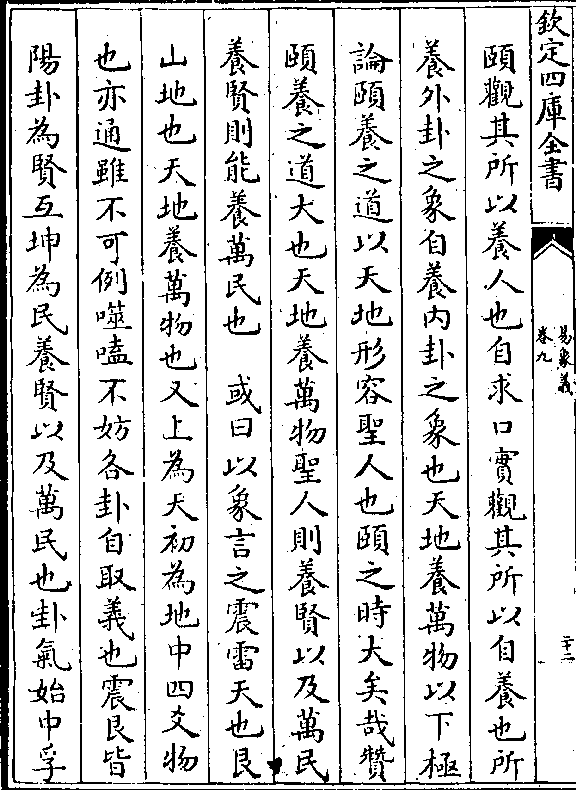 欽定四庫全書
易象義
卷九
二十二
頤觀其所以養人也自求口實觀其所以自養也所
養外卦之象自養内卦之象也天地養萬物以下極
論頤養之道以天地形容聖人也頤之時大矣哉贊
頤養之道大也天地養萬物聖人則養賢以及萬民
養賢則能養萬民也　或曰以象言之震雷天也艮
山地也天地養萬物也又上為天初為地中四爻物
也亦通雖不可例噬嗑不妨各卦自取義也震艮皆
陽卦為賢互坤為民養賢以及萬民也卦氣始中孚